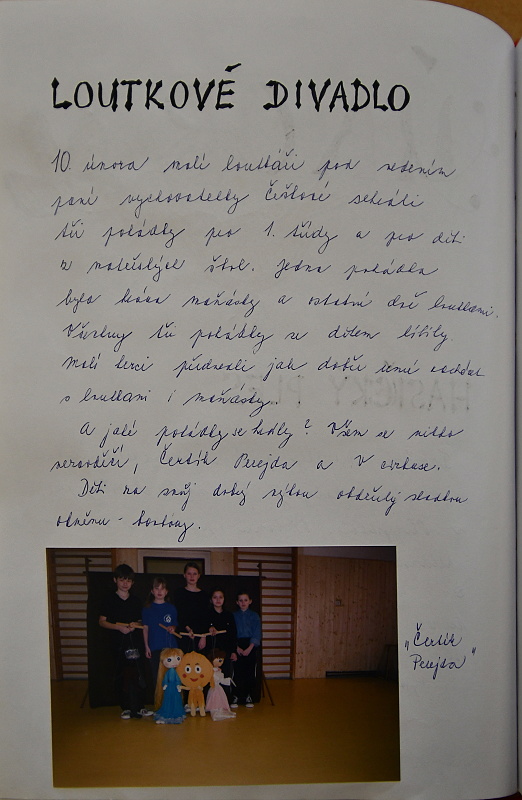 LOUTKOVÉ DIVADLO
10. února malí loutkáři pod vedením
paní vychovatelky Češkové sehráli
tři pohádky pro 1. třídy a pro děti
z mateřských škol. Jedna pohádka
byla hrána maňásky a ostatní dvě loutkami.
Všechny tři pohádky se dětem líbily.
Malí herci předvedli jak dobře umí
s loutkami i maňásky.
A jaké pohádky se hrály? Všem se nikdo
nezavděčí, Čertík Perejda a V cirkuse.
Děti na svůj dobrý výkon obdržely sladkou
odměnu - bonbony.
"Čertík
Perejda"